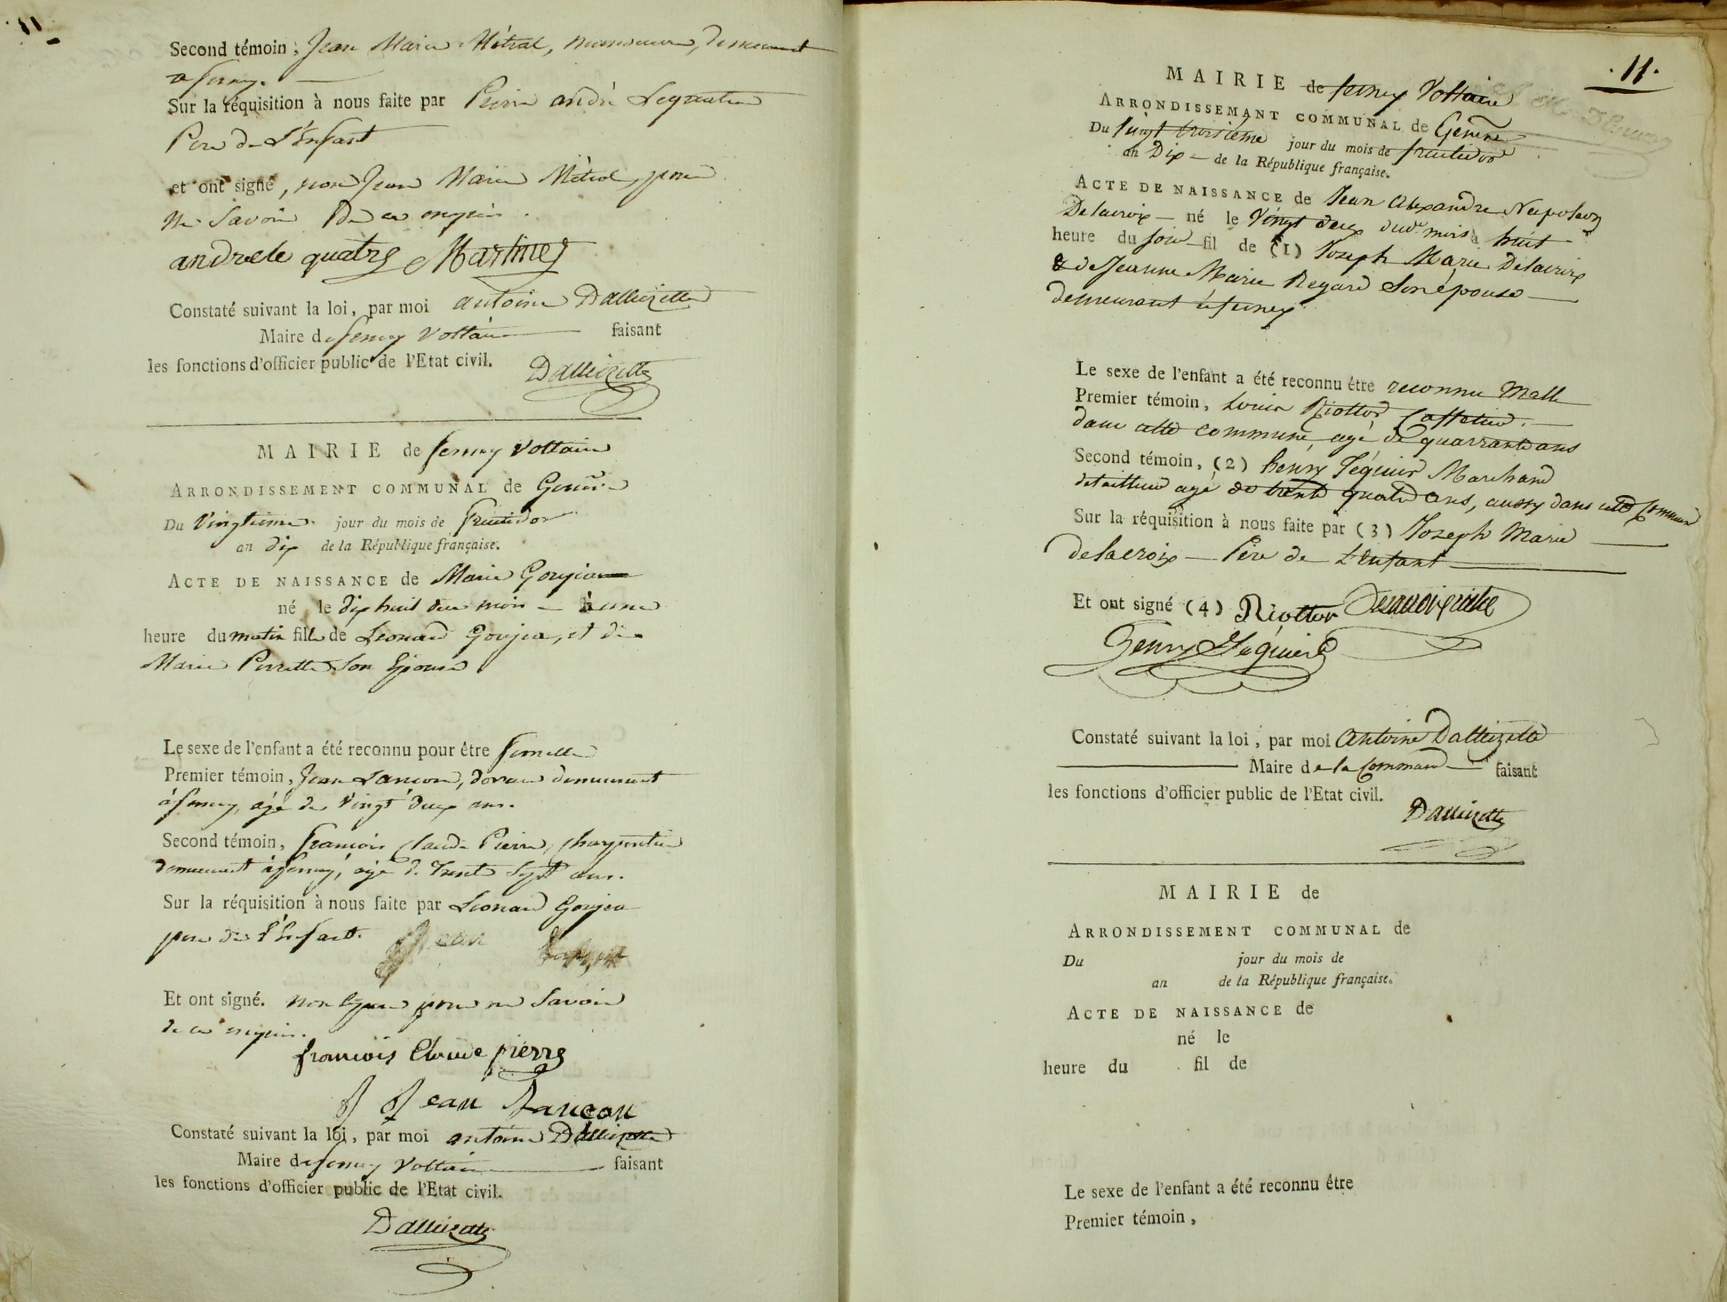 11
Second témoin, Jean Marie Métral, demeurant
a ferney.
Sur la réquisition à nous faite par Pierre andré Lequatre
Pere de L'Enfant
et ont signé, non Jean Marie Métral, pour
ne Savoir de ce enquis.
andre le quatre Martine
Constaté suivant la loi, par moi antoine Dallizette
Maire de ferney Voltaire faisant
les fonctions d'officier public de l'Etat civil.
Dallizette
MAIRIE de ferney Voltaire
ARRONDISSEMENT COMMUNAL de Geneve
Du Vingtieme jour du mois de fructidor
an dix de la République française.
ACTE DE NAISSANCE de Marie Goujon
né le dix huit du mois à une
heure du matin fille de Leonard Goujon, et de
Marie Perrette Son Epouse
Le sexe de l'enfant a été reconnu pour être femelle
Premier témoin, Jean Lancon, demeurant
à ferney, agé de Vingt deux ans.
Second témoin, francois Claude Pierre, charpentier
demeurant à ferney, agé de Trente Sept ans.
Sur la réquisition à nous faite par Leonard Goujon
pere de l'Enfant.
Et ont signé. non le pere pour ne Savoir
de ce enquis.
francois Claude pierre
Jean Lancon
Constaté suivant la loi, par moi antoine Dallizette
Maire de ferney Voltaire faisant
les fonctions d'officier public de l'Etat civil.
Dallizette
11.
MAIRIE de ferney Voltaire
ARRONDISSEMANT COMMUNAL de Geneve
Du Vingt troisième jour du mois de fructidor
an Dix de la République française.
ACTE DE NAISSANCE de Jean Alexandre Napoleon
Delacroix né le Vingt deux dud. mois à huit
heure du soir fil de (1) Joseph Marie Delacroix
& de Jeanne Marie Regard Son épouse
demeurant à ferney
Le sexe de l'enfant a été reconnu être reconnu Malle
Premier témoin, Louis Riottor Caffetier.
dans cette commune agé de quarrante ans
Second témoin, (2) henry Jéquier Marchand
detailleur agé de trente quatre ans, aussy dans cette Commune
Sur la réquisition à nous faite par (3) Joseph Marie
delacroix Père de L'Enfant
Et ont signé (4) Riottor
Henry Jéquier
Constaté suivant la loi, par moi Antoine Dallizette
Maire de la Commune faisant
les fonctions d'officier public de l'Etat civil.
Dallizette
MAIRIE de
ARRONDISSEMENT COMMUNAL de
Du jour du mois de
an de la République française.
ACTE DE NAISSANCE de
né le
heure du fil de
Le sexe de l'enfant a été reconnu être
Premier témoin,